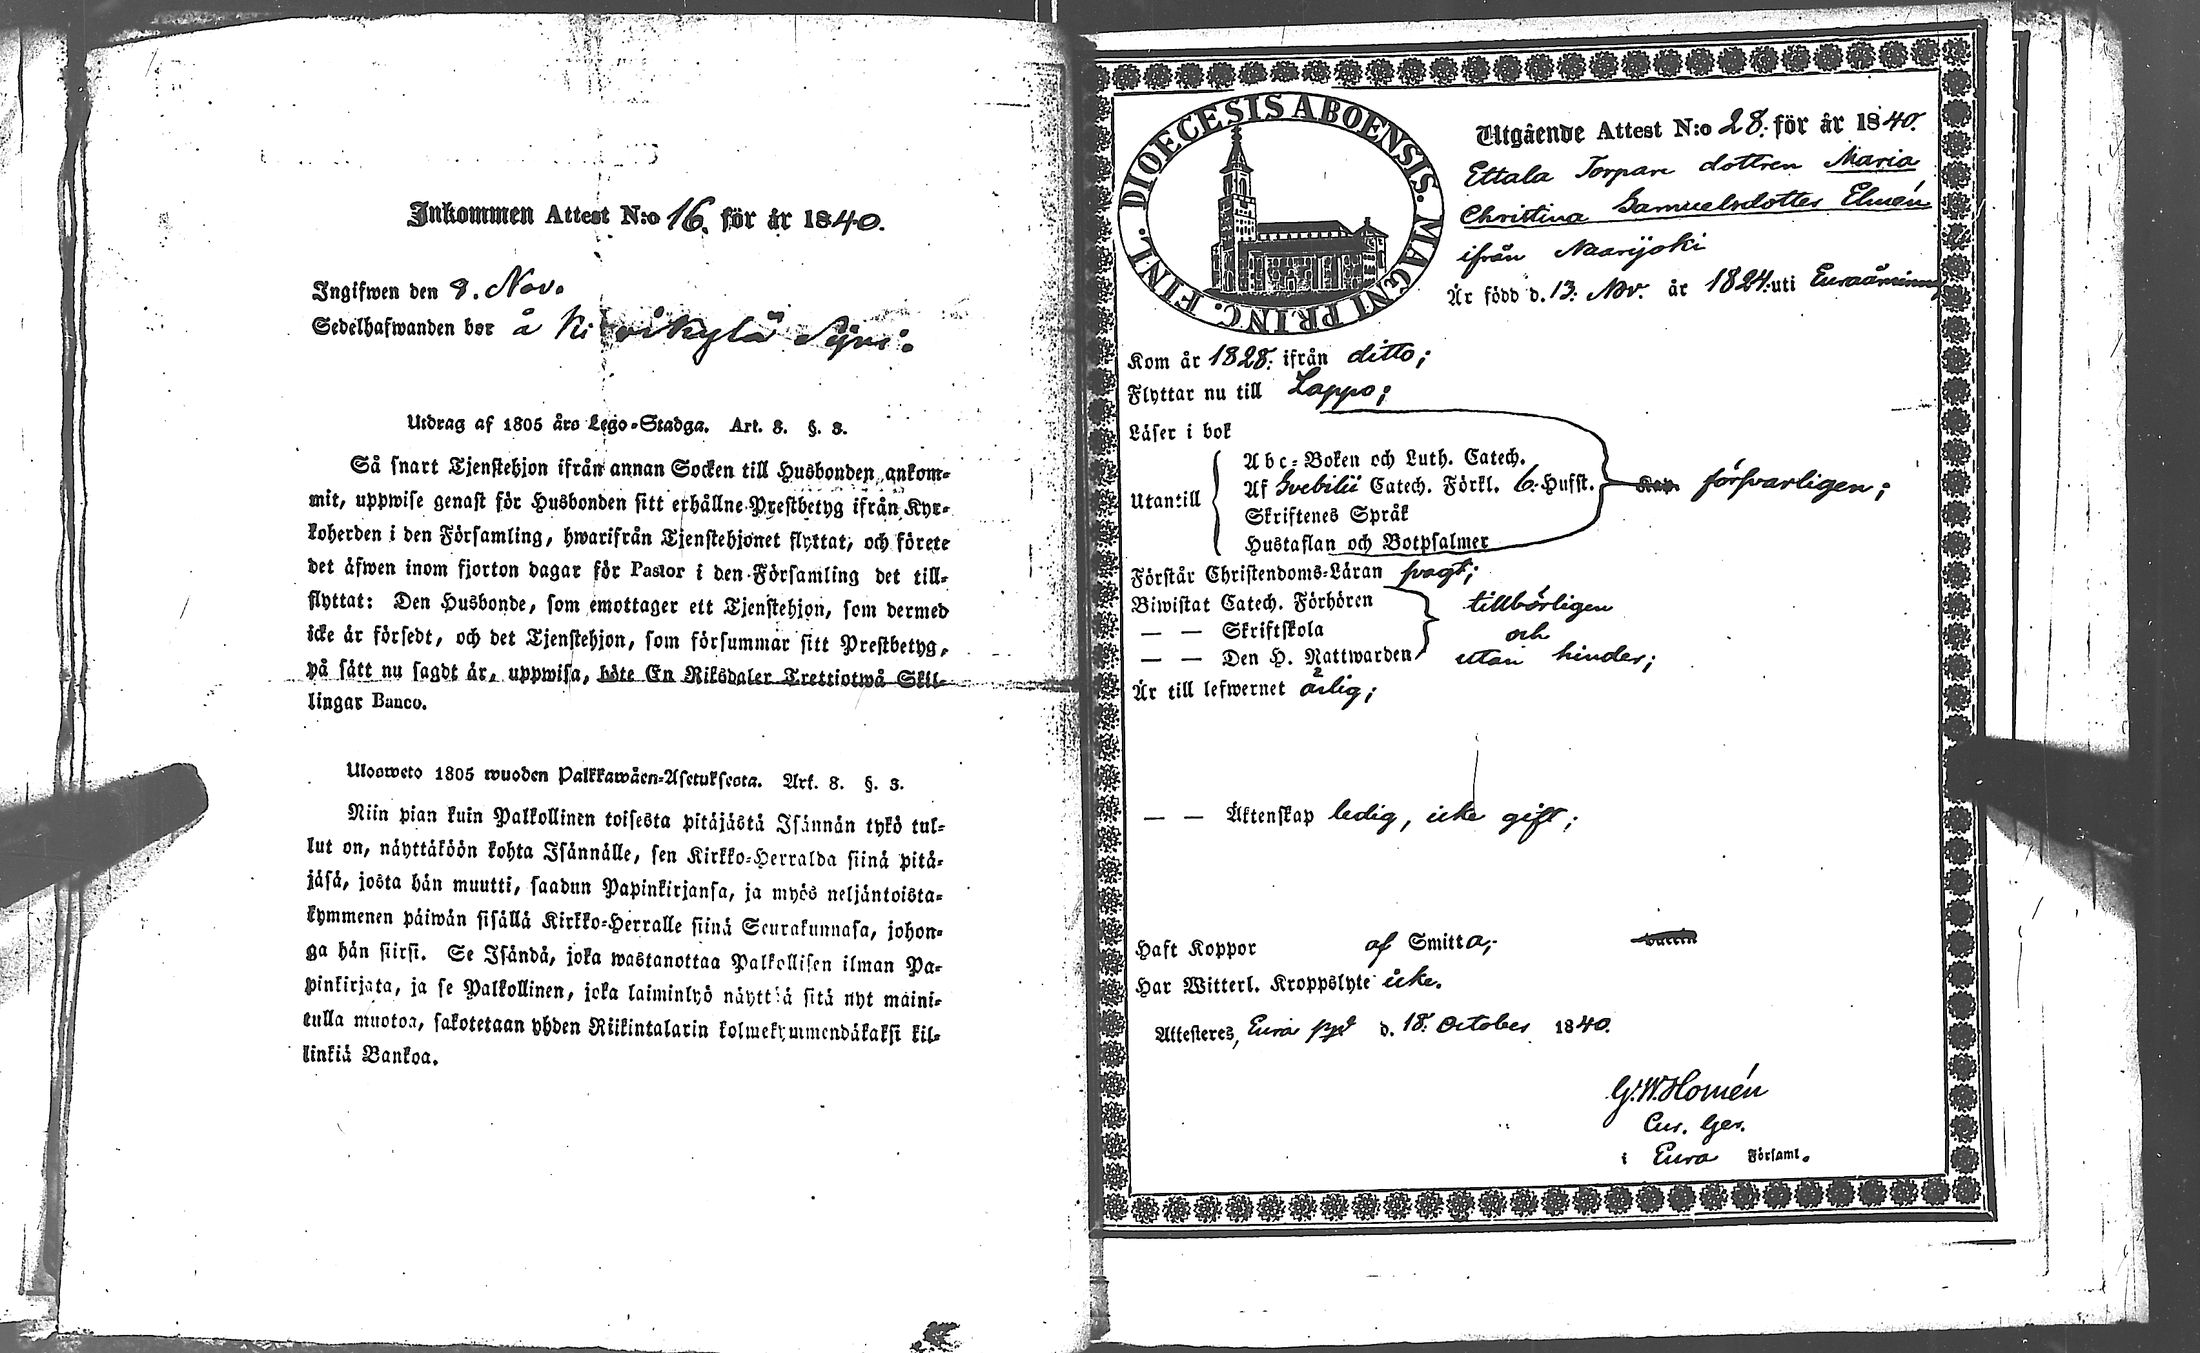 Inkommen Attest N:o 16. för år 1840.
Ingifwen den 8. Nov.
Sedelhafwanden bor å Ki wikylä
Utdrag af 1805 års Lego-Stadga. Art. 8. §. 3.
Så snart Tjenstehjon ifrån annan Socken till Husbonden ankom-
mit, uppwise genast för Husbonden sitt erhållne Prestbetyg ifrån Kyr-
koherden i den Församling, hwarifrån Tjenstehjonet flyttat, och förete
det äfwen inom fjorton dagar för Pastor i den Församling det till-
flyttat: Den Husbonde, som emottager ett Tjenstehjon, som dermed
icke är försedt, och det Tjenstehjon, som försummar sitt Prestbetyg,
på sätt nu sagdt är, uppwisa, böte En Riksdaler Trettiotwå Skil-
lingar Banco.
Ulosweto 1805 wuoden Palkkawäen-Asetuksesta. Art. 8. §. 3.
Niin pian kuin Palkollinen toisesta pitäjästä Isännän tykö tul-
lut on, näyttäköön kohta Isännälle, sen Kirkko-Herralda siinä pitä-
jäsä, josta hän muutti, saadun Papinkirjansa, ja myös neljäntoista-
kymmenen päiwän sisällä Kirkko-Herralle siinä Seurakunnasa, johon-
ga hän siirsi. Se Isändä, joka wastanottaa Palkollisen ilman Pa-
pinkirjata, ja se Palkollinen, joka laiminlyö näyttää sitä nyt maini-
tulla muotoa, sakotetaan yhden Riikintalarin kolmekymmendäkaksi kil-
linkiä Bankoa.
DIOECESIS ABOENSIS. MAGNI PRINC. FINL.
Utgående Attest N:o 28. för år 1840.
Ettala Torpare dottren Maria
Christina Samuelsdotter Elmén
ifrån Naarjoki
Är född d. 13. Nov. år 1824. uti Euraåminne
Kom år 1828. ifrån ditto;
Flyttar nu till Lappo;
Läser i bok
Utantill
Abc-Boken och Luth. Catech.
Af Svebilii Catech. Förkl. 6. Hufst. försvarligen;
Skriftenes Språk
Hustaflan och Botpsalmer
Förstår Christendoms-Läran svagt;
Biwistat Catech. Förhören tillbörligen
— — Skriftskola och
— — Den H. Nattwarden utan hinder;
Är till lefwernet ärlig;
— — Äktenskap ledig, icke gift;
Haft Koppor af Smitta;
Har Witterl. Kroppslyte icke.
Attesteres, Eura pgd d. 18. October 1840.
G. W. Homén
Cur. Ger.
i Eura Församl.